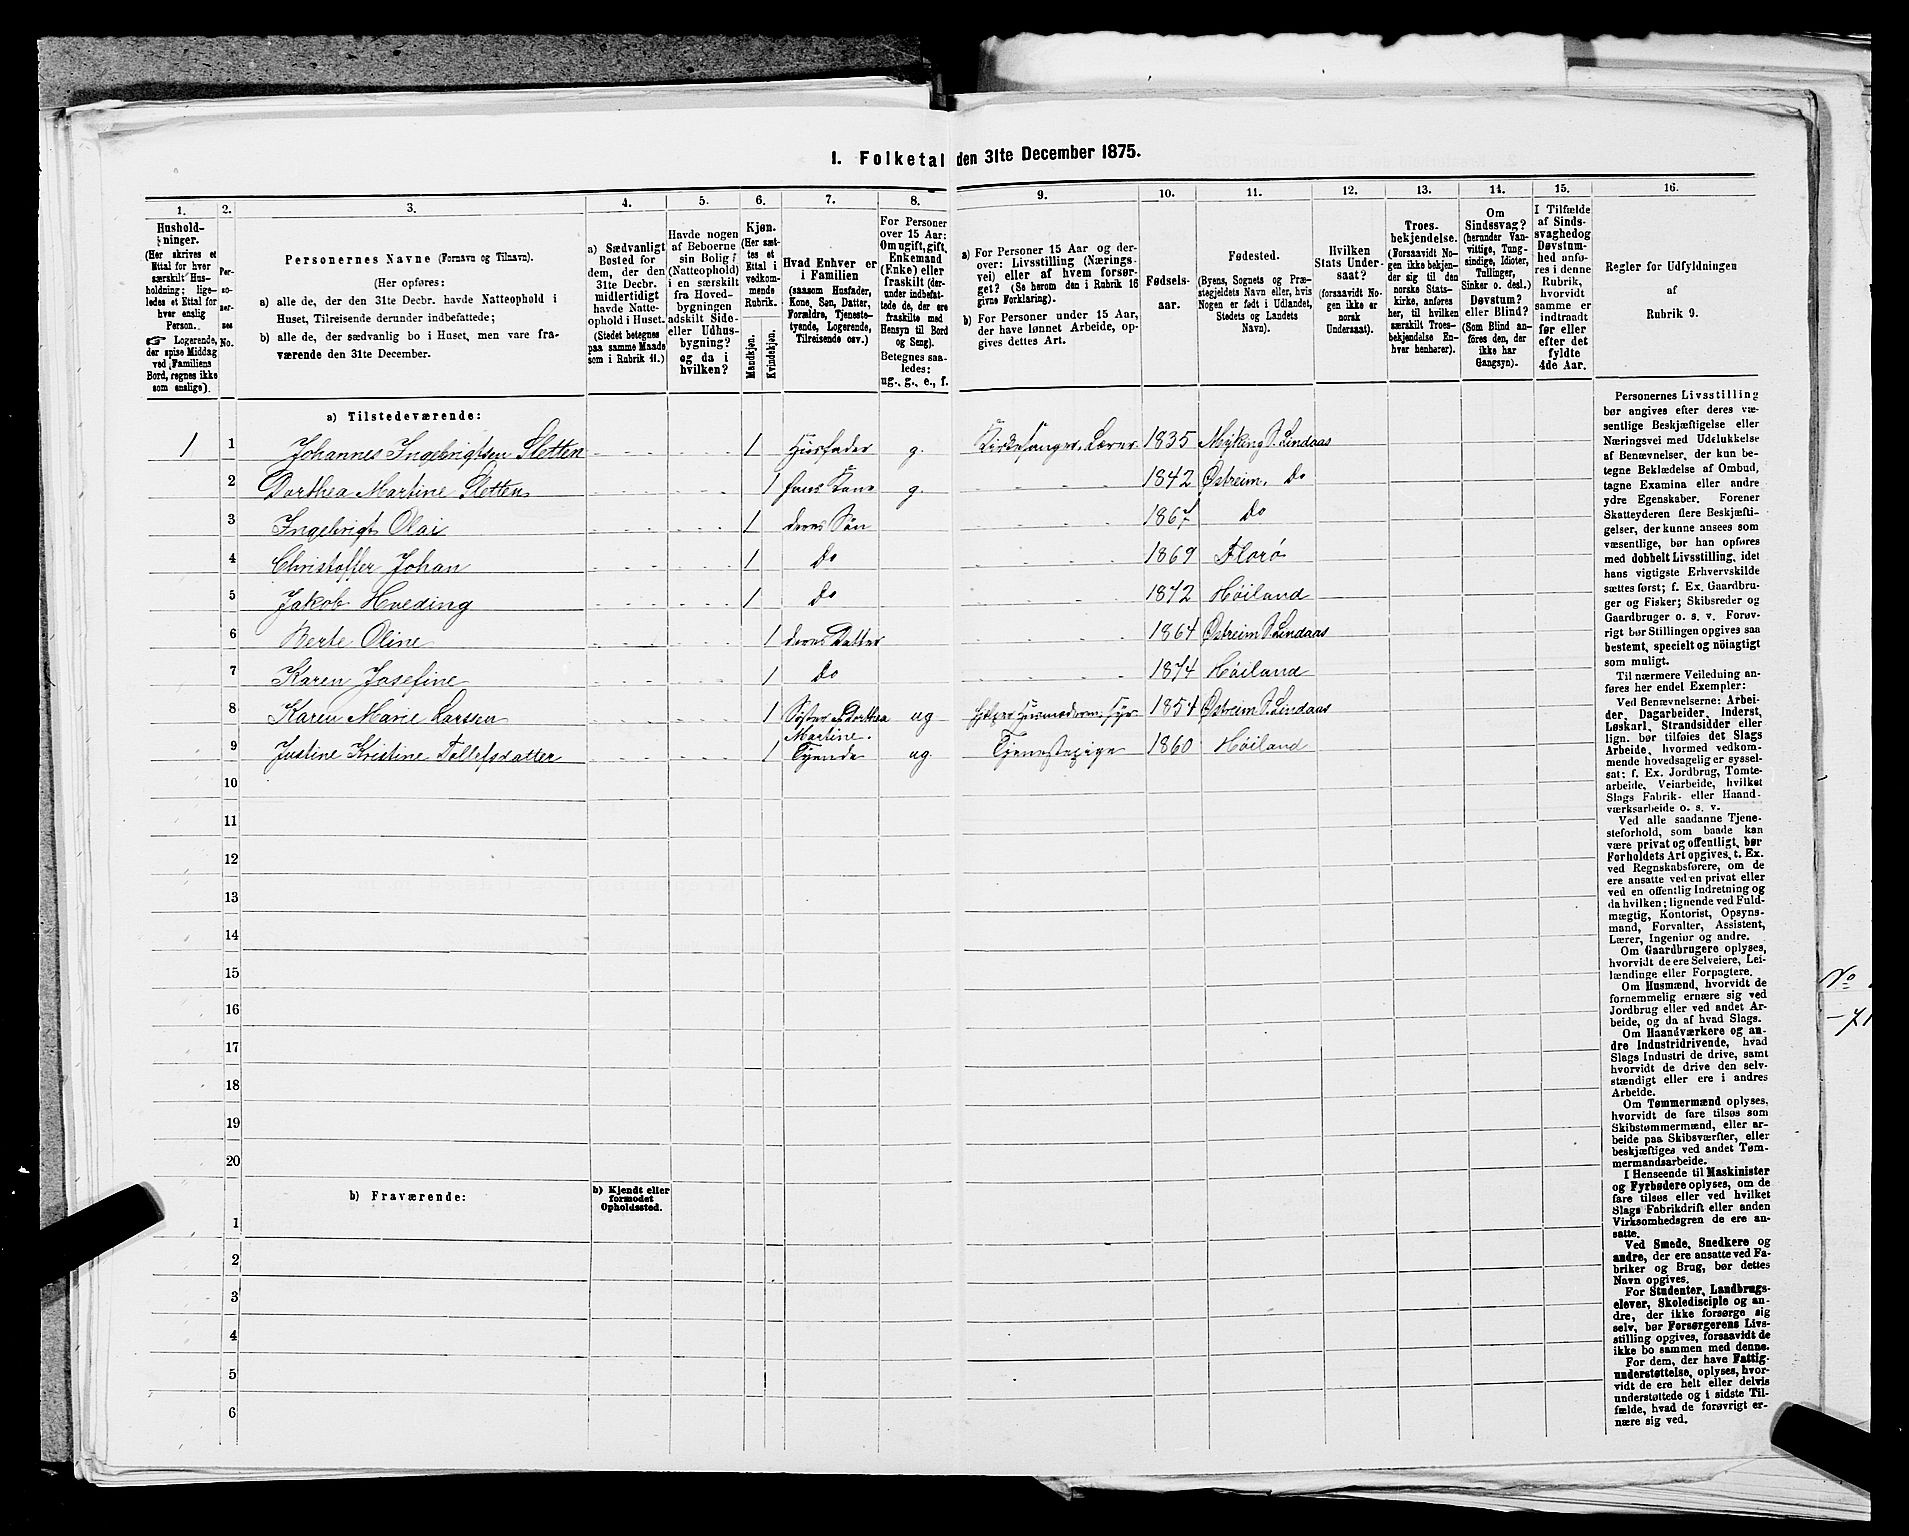 I. Folketal den 31te December 1875.
1. 2. 3. 4. 5. 6. 7. 8. 9. 10. 11. 12. 13. 14. 15. 16.
Hushold-
ninger.
(Her skrives et
Ettal for hver
særskilt Hus-
holdning; lige-
ledes et Ettal for
hver enslig
Person.
☞ Logerende,
der spise Middag
ved Familiens
Bord, regnes ikke
som enslige).
Per-
so-
ner-
nes
No.
Personernes Navne (Fornavn og Tilnavn).
(Her opføres:
a) alle de, der den 31te Decbr. havde Natteophold i
Huset, Tilreisende derunder indbefattede;
b) alle de, der sædvanlig bo i Huset, men vare fra-
værende den 31te December.
a) Sædvanligt
Bosted for
dem, der den
31te Decbr.
midlertidigt
havde Natte-
ophold i Huset.
(Stedet betegnes
paa samme Maade
som i Rubrik 11.)
Havde nogen
af Beboerne
sin Bolig
(Natteophold)
i en særskilt
fra Hoved-
bygningen
adskilt Side-
eller Udhus-
bygning?
og da i
hvilken?
Kjøn.
(Her sæt-
tes et
Ettal i
vedkom-
mende
Rubrik.
Mandkjøn.
Kvindekjøn.
Hvad Enhver er
i Familien
(saasom Husfader,
Kone, Søn, Datter,
Forældre, Tjeneste-
tyende, Logerende,
Tilreisende osv.)
For Personer
over 15 Aar:
Om ugift, gift,
Enkemand
(Enke) eller
fraskilt (der-
under indbefat-
tede de, der ere
fraskilte med
Hensyn til Bord
og Seng).
Betegnes saa-
ledes:
ug., g., e., f.
a) For Personer 15 Aar og der-
over: Livsstilling (Nærings-
vei) eller af hvem forsør-
get? (Se herom den i Rubrik 16
givne Forklaring).
b) For Personer under 15 Aar,
der have lønnet Arbeide, op-
gives dettes Art.
Fødsels-
aar.
Fødested.
(Byens, Sognets og Præ-
stegjeldets Navn eller, hvis
Nogen er født i Udlandet,
Stedets og Landets
Navn).
Hvilken
Stats Under-
saat?
(forsaavidt No-
gen ikke er
norsk
Undersaat).
Troes-
bekjendelse.
(Forsaavidt No-
gen ikke bekjen-
der sig til den
norske Stats-
kirke, anføres
her, til hvilken
særskilt Troes-
bekjendelse En-
hver henhører).
Om
Sindssvag?
(herunder Van-
vittige, Tung-
sindige, Idioter,
Tullinger,
Sinker o. desl.)
Døvstum?
eller Blind?
(Som Blind an-
føres den, der
ikke har
Gangsyn).
I Tilfælde
af Sinds-
svaghed og
Døvstum-
hed anfø-
res i denne
Rubrik,
hvorvidt
samme er
indtraadt
før eller
efter det
fyldte
4de Aar.
Regler for Udfyldningen
af
Rubrik 9.
a) Tilstedeværende:
1 1 Johannes Ingebrigtsen Sletten 1 Husfader g. Kirkesanger, Lærer 1835 Myking S. Lindaas
2 Dorthea Martine Sletten 1 hans Kone g. 1842 Østreim, Do
3 Ingebrigt Olai 1 deres Søn 1867 Do
4 Christoffer Johan 1 Do 1869 Florø
5 Jakob Hveding 1 Do 1872 Høiland
6 Berte Oline 1 deres Datter 1864 Østreim S. Lindaas
7 Karen Josefine 1 Do 1874 Høiland
8 Karen Marie Larsen 1 Søster Dorthea ug Husmoderen 1854 Østreim S. Lindaas
Martine.
9 Justine Kristine Tollefsdatter 1 Tyende ug Tjenestepige 1860 Høiland
10
11
12
13
14
15
16
17
18
19
20
b) Fraværende:
b) Kjendt eller
formodet
Opholdssted.
1
2
3
4
5
6
Personernes Livsstilling
bør angives efter deres væ-
sentlige Beskjæftigelse eller
Næringsvei med Udelukkelse
af Benævnelser, der kun be-
tegne Beklædelse af Ombud,
tagne Examina eller andre
ydre Egenskaber. Forener
Skatteyderen flere Beskjæfti-
gelser, der kunne ansees som
væsentlige, bør han opføres
med dobbelt Livsstilling, idet
hans vigtigste Erhvervskilde
sættes først; f. Ex. Gaardbru-
ger og Fisker; Skibsreder og
Gaardbruger o. s. v. Forøv-
rigt bør Stillingen opgives saa
bestemt, specielt og nöiagtigt
som muligt.
Til nærmere Veiledning an-
føres her endel Exempler:
Ved Benævnelserne: Arbei-
der, Dagarbeider, Inderst,
Løskarl, Strandsidder eller
lign. bør tilføies det Slags
Arbeide, hvormed vedkom-
mende hovedsagelig er syssel-
sat: f. Ex. Jordbrug, Tomte-
arbeide, Veiarbeide, hvilket
Slags Fabrik- eller Haand-
værksarbeide o. s. v.
Ved alle saadanne Tjene-
steforhold, som baade kan
være privat og offentligt, bør
Forholdets Art opgives, t. Ex.
ved Regnskabsførere, om de
ere ansatte ved en privat eller
ved en offentlig Indretning og
da hvilken; lignende ved Fuld-
mægtig, Kontorist, Opsyns-
mand, Forvalter, Assistent,
Lærer, Ingeniør og andre.
Om Gaardbrugere oplyses,
hvorvidt de ere Selveiere, Lei-
lændinge eller Forpagtere.
Om Husmænd, hvorvidt de
fornemmelig ernære sig ved
Jordbrug eller ved andet Ar-
beide, og da af hvad Slags.
Om Haandværkere og an-
dre Industridrivende, hvad
Slags Industri de drive, samt
hvorvidt de drive den selv-
stændigt eller ere i andres
Arbeide.
Om Tømmermænd oplyses,
hvorvidt de fare tilsøs som
Skibstømmermænd, eller ar-
beide paa Skibsværfter, eller
beskjæftiges ved andet Tøm-
mermandsarbeide.
I Henseende til Maskinister
og Fyrbødere oplyses, om de
fare tilsøs eller ved hvilket
Slags Fabrikdrift eller anden
Virksomhedsgren de ere an-
satte.
Ved Smede, Snedkere og
andre, der ere ansatte ved Fa-
briker og Brug, bør dettes
Navn opgives.
For Studenter, Landbrugs-
elever, Skoledisciple og an-
dre, der ikke forsørge sig
selv, bør Forsørgerens Livs-
stilling opgives, forsaavidt de
ikke bo sammen med denne.
For dem, der have Fattig-
understøttelse, oplyses, hvor-
vidt de ere helt eller delvis
understøttede og i sidste Til-
fælde, hvad de forøvrigt er-
nære sig ved.
No